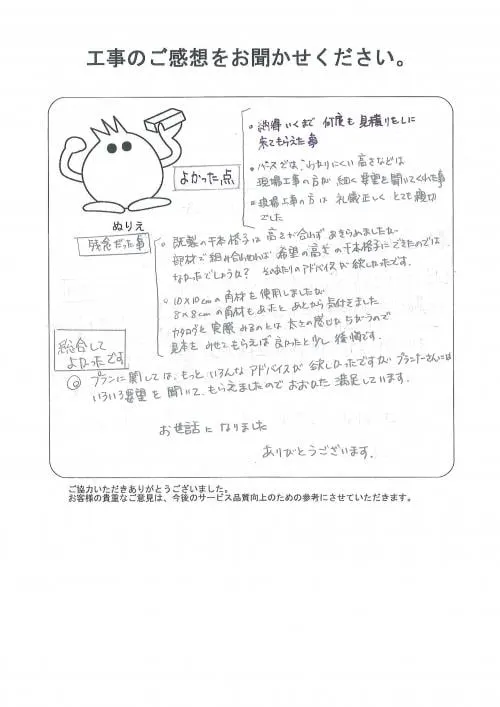 工事のご感想をお聞かせください。
よかった点
。納得いくまで 何度も 見積りをしに
来てもらえた事
。パースでは、わかりにくい 高さなどは
現場工事の方が 細く 要望を聞いてくれた事
。現場工事の方は 礼儀正しく とても 親切
でした
ぬりえ
残念だった事
。既製の千本格子は 高さが合わず あきらめましたが
部材で組み合わせれば 希望の高さの千本格子にできたのでは
なかったでしょうか? そのあたりのアドバイスが欲しかったです。
。10×10cmの角材を使用しましたが
8×8cmの角材もあったと あとから気付きました
カタログと実際みるのとは 太さの感じが ちがうので
見本を みせてもらえば 良かったと少し 後悔です。
総合して
よかったです
◎ プランに関しては、もっと いろんな アドバイスが 欲しかったですが プランナーさんには
いろいろ要望を 聞いて、もらえましたので おおむね 満足しています.
お世話に なりました
ありがとうございます.
ご協力いただきありがとうございました。
お客様の貴重なご意見は、今後のサービス品質向上のための参考にさせていただきます。